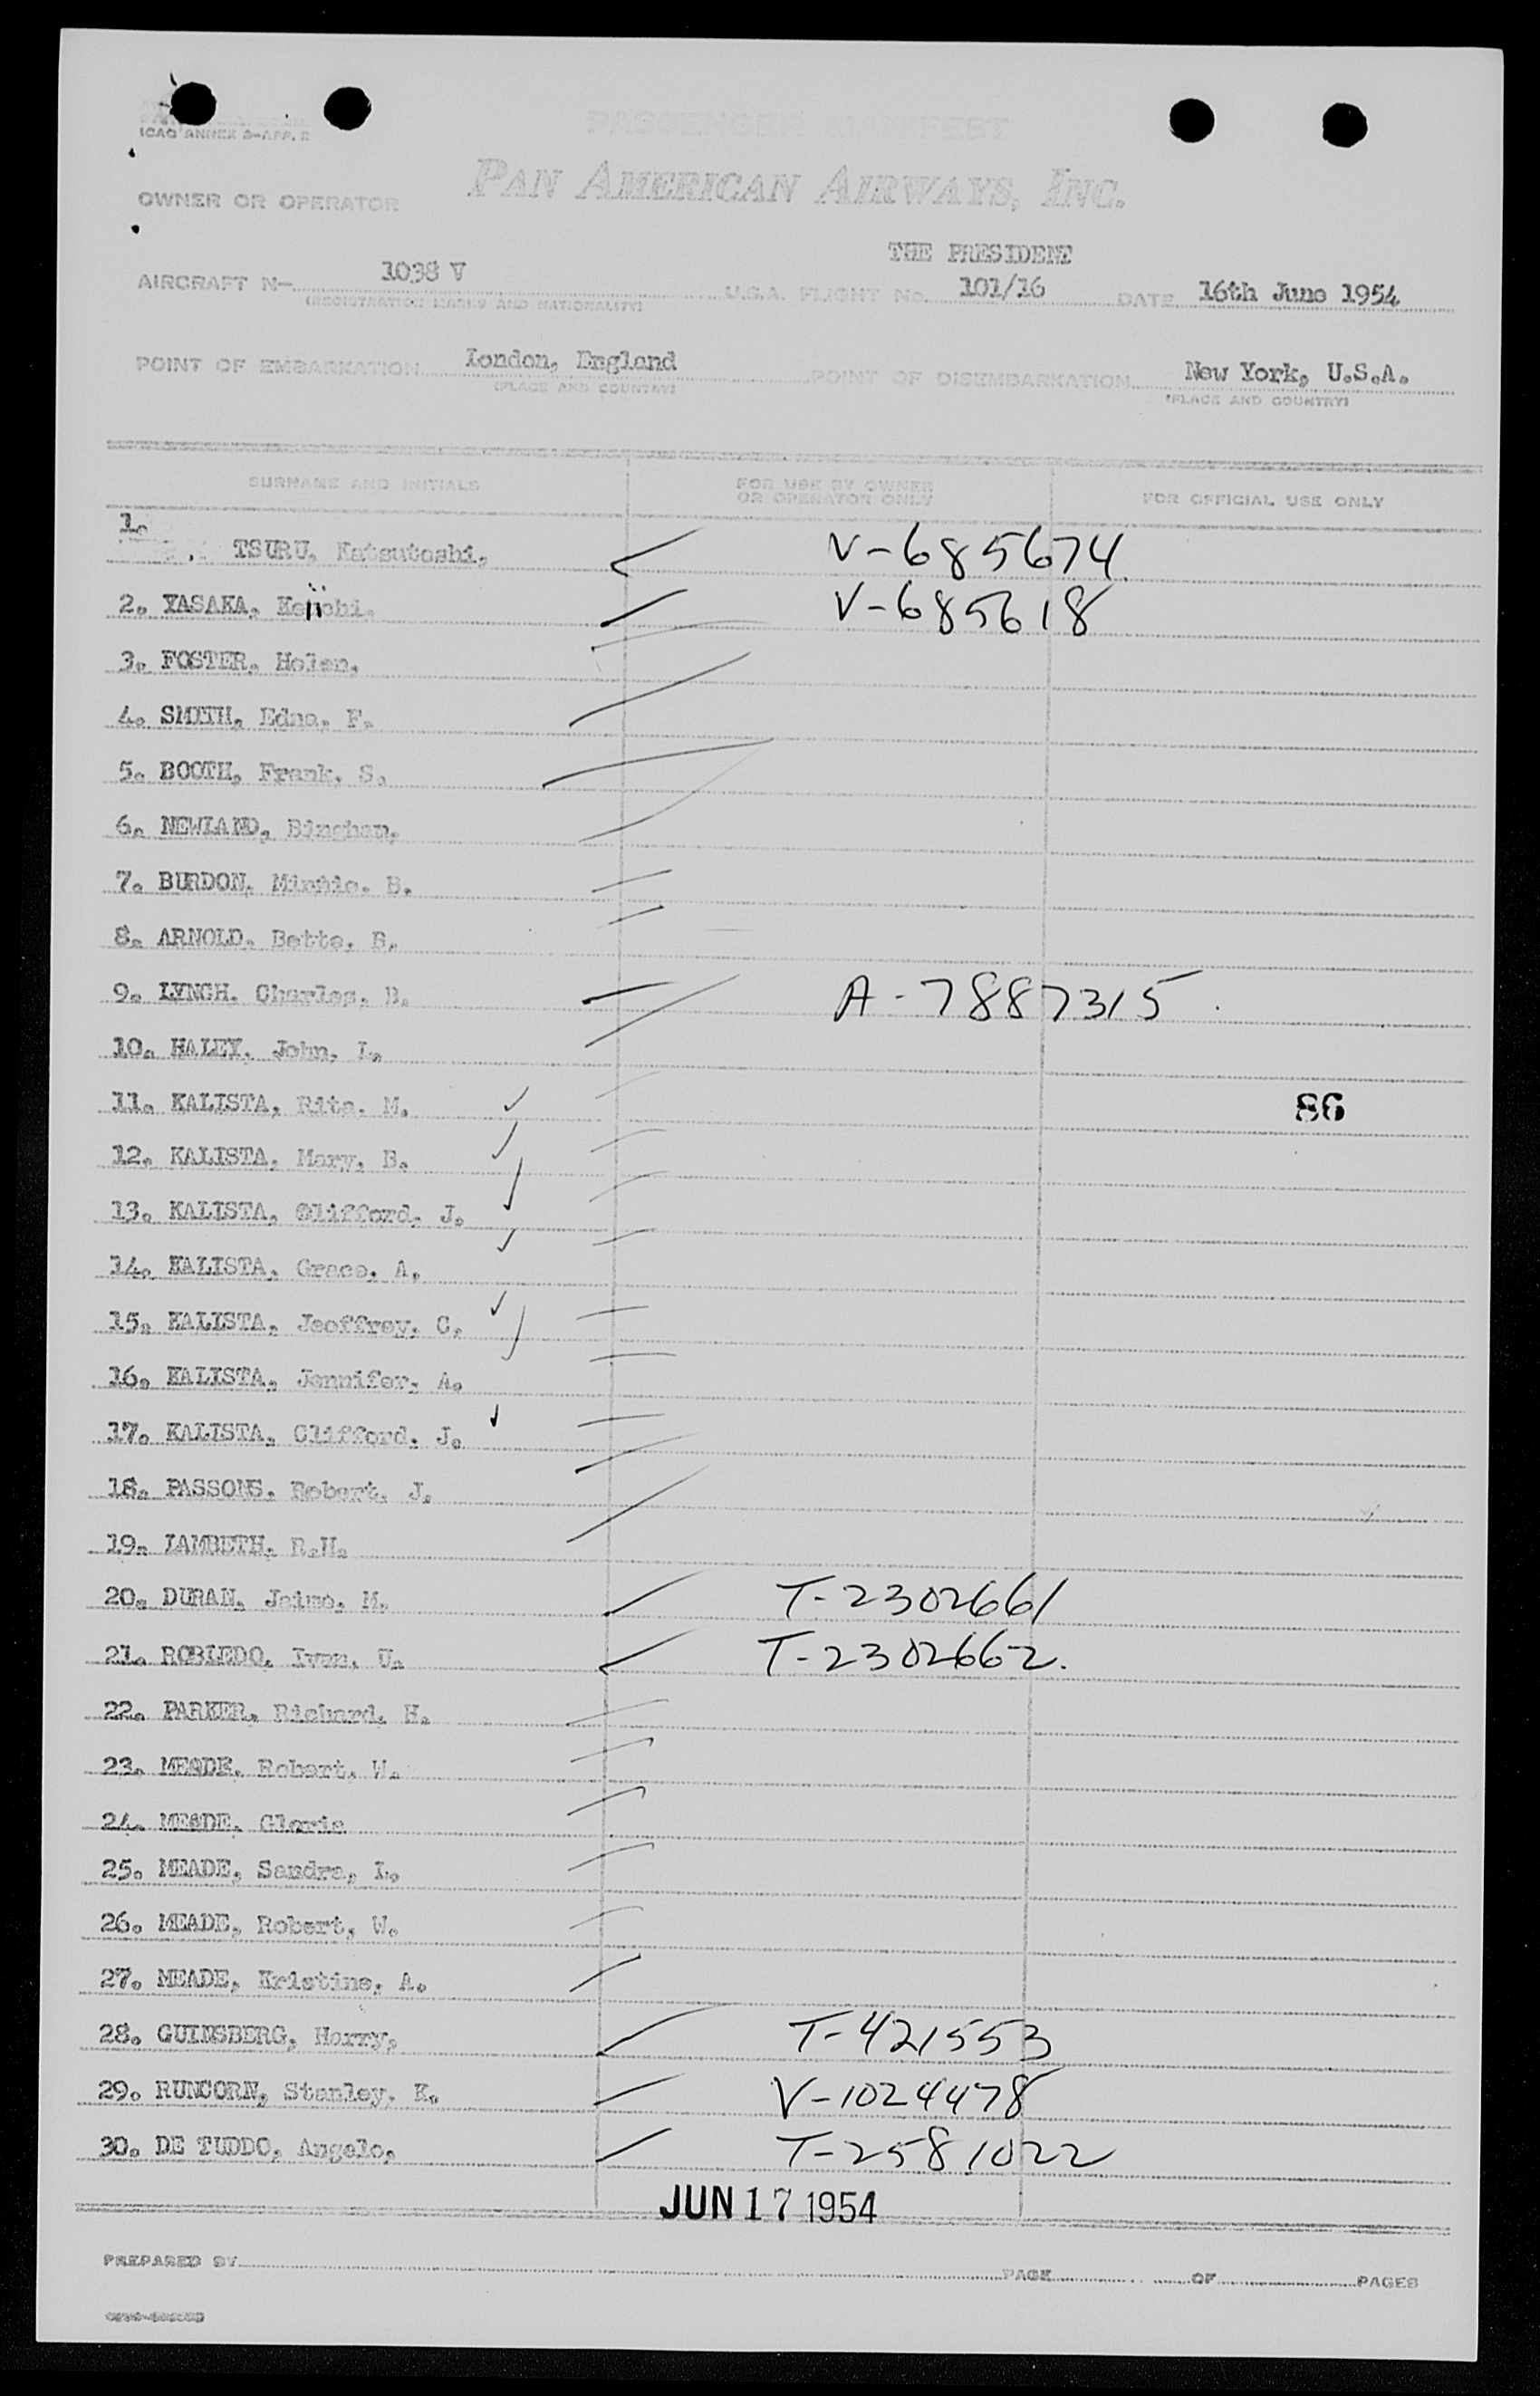 ICAO ANNEX 9-APP. 2
PASSENGER MANIFEST
OWNER OR OPERATOR PAN AMERICAN AIRWAYS, INC.
THE PRESIDENT
AIRCRAFT N- 1038 V U.S.A. FLIGHT NO. 101/16 DATE 16th June 1954
(REGISTRATION MARKS AND NATIONALITY)
POINT OF EMBARKATION London, England POINT OF DISEMBARKATION New York, U.S.A.
(PLACE AND COUNTRY) (PLACE AND COUNTRY)
SURNAME AND INITIALS FOR USE BY OWNER OR OPERATOR ONLY FOR OFFICIAL USE ONLY
1. TSURU, Katsutoshi, V-685674
2. YASAKA, Keiichi. V-685618
3. FOSTER, Helen.
4. SMITH, Edna. F.
5. BOOTH, Frank. S.
6. NEWLAND, Bingham.
7. BURDON, Minnie. B.
8. ARNOLD. Bette. B.
9. LYNCH. Charles. B. A-7887315.
10. HALEY. John. L.
11. KALISTA, Rita. M. 86
12. KALISTA. Mary. B.
13. KALISTA, Clifford. J.
14. KALISTA. Grace. A.
15. KALISTA. Jeoffrey. C.
16. KALISTA. Jennifer. A.
17. KALISTA, Clifford. J.
18. PASSONS. Robert. J.
19. LAMBETH. R.H.
20. DURAN. Jaime. M. T-2302661
21. ROBLEDO. Ivan. U. T-2302662.
22. PARKER. Richard. H.
23. MEADE. Robert. W.
24. MEADE. Gloria
25. MEADE, Sandra, L.
26. MEADE, Robert, W.
27. MEADE, Kristine. A.
28. GUINSBERG, Harry, T-421553
29. RUNCORN, Stanley. K. V-1024478
30. DE TUDDO, Angelo, T-2581022
JUN 17 1954
PREPARED BY PAGE OF PAGES